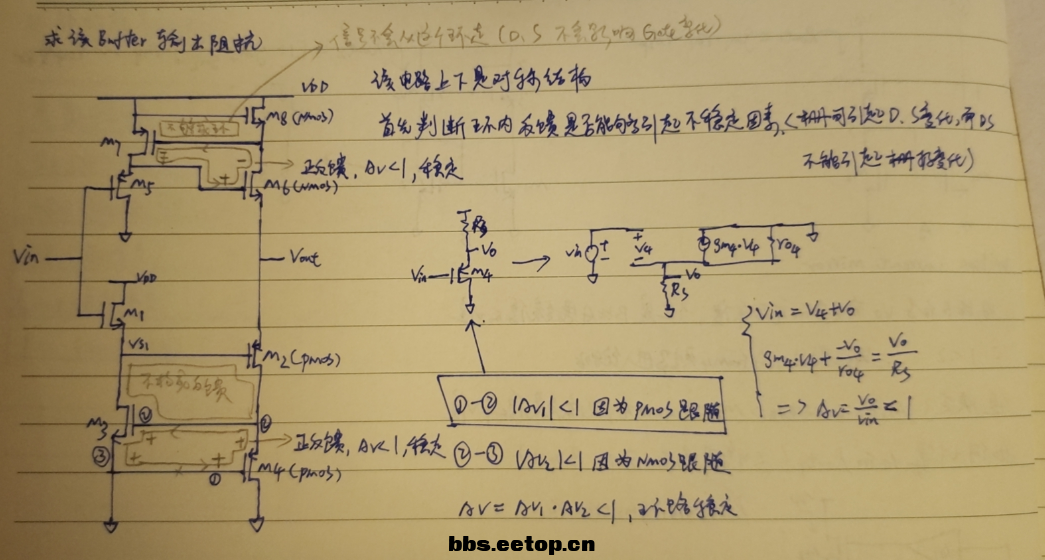 求该Buffer输出阻抗
信号不会从这个环走(D.S 不会影响Gate变化)
该电路上下是对称结构
首先判断环内反馈是否能够引起不稳定因素.(栅可引起D.S变化,而DS
不能引起栅极变化)
VDD
M8(NMOS)
M7
正反馈,AV<1,稳定
M5
M6(NMOS)
Vin
Vout
VDD
M1
VS1
M2(PMOS)
不构成反馈
M3
②
②
③
①
正反馈,AV<1,稳定
M4(PMOS)
Rs
Vo
Vin
M4
Vin
V4
gm4·V4
ro4
Vo
Rs
Vin = V4+Vo
gm4·V4 + -Vo/ro4 = Vo/Rs
=> AV = Vo/Vin < 1
①-② |AV1|<1 因为PMOS跟随
②-③ |AV2|<1 因为NMOS跟随
AV = AV1·AV2<1,环路稳定
bbs.eetop.cn